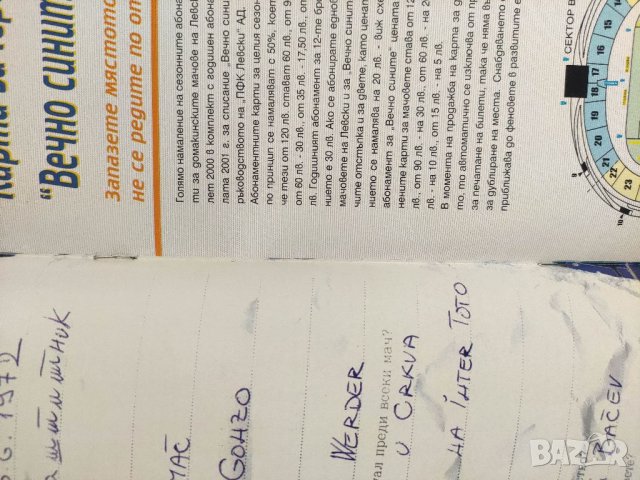 Карта за
"Вечно синит
Запазете мястото
не се редите по от
Голямо намаление на сезонните абона
ти за домакинските мачове на Левски
лет 2000 в комплект с годишен абона
лата 2001 г. за списание „Вечно сини
ръководството на „ПФК Левски" АД.
Абонаментните карти за целия сезон
по принцип се намаляват с 50%, коет
че тези от 120 лв. стават 60 лв., от 9
от 60 лв. - 30 лв., от 35 лв. - 17,50 лв., от
лв. Годишният абонамент за 12-те бро
нието е 30 лв. Ако се абонирате еднов
мачовете на Левски и за „Вечно сините
чите отстъпка и за двете, като ценат
нието се намалява на 20 лв. - виж схе
абонамент за „Вечно сините" цената
нените карти за мачовете става от 12
лв., от 90 лв. - на 30 лв., от 60 лв. - на 20
лв. - на 10 лв., от 15 лв. - на 5 лв.
В момента на продажба на карта за д
то, то автоматично се изключва от пр
за печатане на билети, така че няма въ
за дублиране на места. Снабдяването
приближава до феновете в развитите е
СЕКТОР В
15
16
17
18
19
20
21
22
23
10
6. 1972
МАČ
GOHZO
WERDER
ал преди всеки мач?
U CRKVA
НА İНTER TOTO
BAČEV
bazar.bg